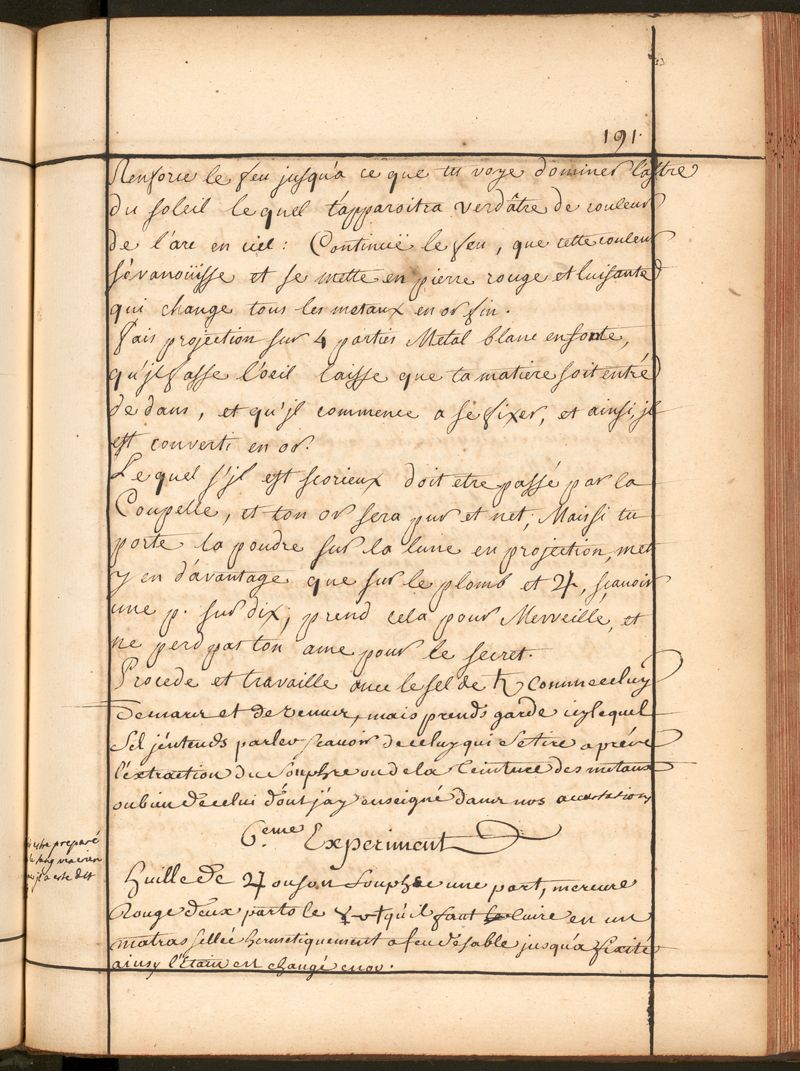 191.
Renforce le feu jusqu'a ce que tu voye dominer l'astre
du soleil le quel t'apparoitra verdâtre de couleur
de l'arc en ciel : Continuë le feu, que cette couleur
s'évanoüisse et se mette en pierre rouge et luisante
qui change tous les metaux en or fin.
fais projection sur 4 parties Metal blanc en fonte,
qu'jl fasse l'oeil laisse que ta matiere soit entré
de dans, et qu'jl commence a se fixer, et ainsi jl
est converti en or.
Le quel s'jl est scorieux doit etre passé par la
Coupelle, et ton or sera pur et net; Mais si tu
porte la poudre sur la lune en projection, met
y en d'avantage que sur le plomb et ♃, sçavoir
une p. sur dix; prend cela pour Merveille, et
ne perd pas ton ame pour le secret.
Procede et travaille avec le sel de ♄ comme celuy
de mars et de venus, mais prends garde icy le quel
sel j'entends parler scavoir de celuy qui se tire apréz
l'extraction du Souphre ou de la teinture des metaux
ou bien de celui dont j'ay enseigné dans nos
6.eme Experiment
Huille de ♃ ou son Souphre une part, mercure
Rouge deux parts le qu'il faut cuire en un
matras sellée hermetiquement a feu de sable jusqu'a fixité
ainsy l'Etain est changé en or.
preparé
jl a este dit